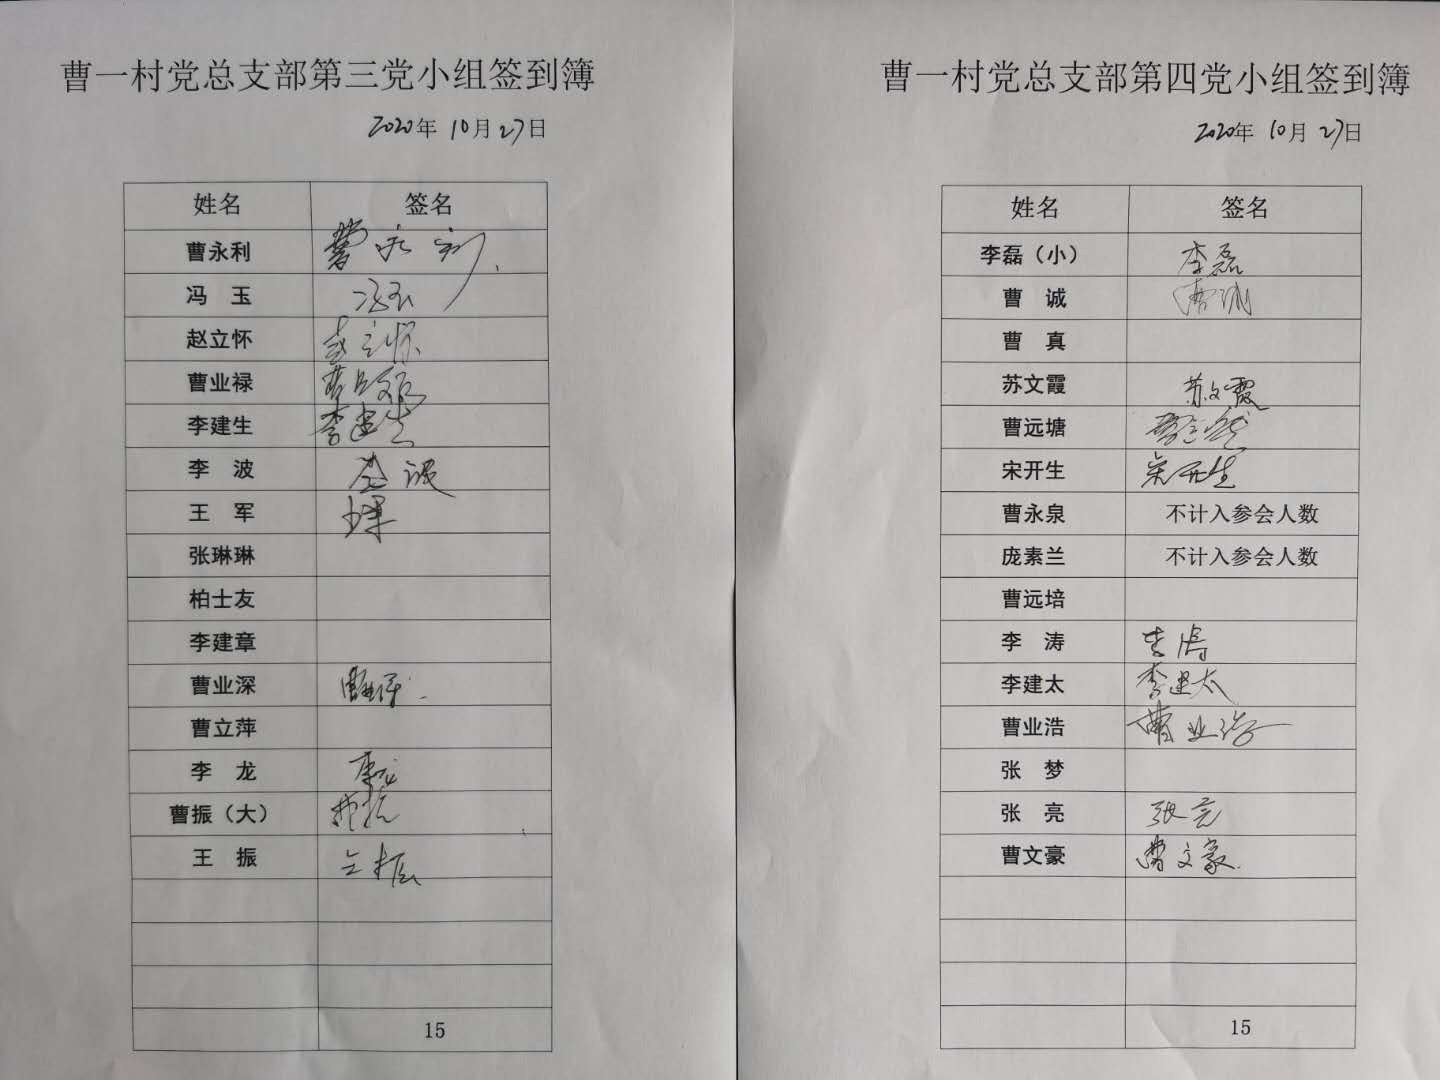 曹一村党总支部第三党小组签到簿
2020年 10月27日
姓名 签名
曹永利 曹永利
冯 玉 冯玉
赵立怀 赵立怀
曹业禄
李建生 李建生
李 波
王 军 王军
张琳琳
柏士友
李建章
曹业深
曹立萍
李 龙 李龙
曹振（大）
王 振 王振
15
曹一村党总支部第四党小组签到簿
2020年 10月27日
姓名 签名
李磊（小） 李磊
曹 诚 曹诚
曹 真
苏文霞 苏文霞
曹远塘
宋开生 宋开生
曹永泉 不计入参会人数
庞素兰 不计入参会人数
曹远培
李 涛 李涛
李建太 李建太
曹业浩 曹业浩
张 梦
张 亮 张亮
曹文豪 曹文豪
15